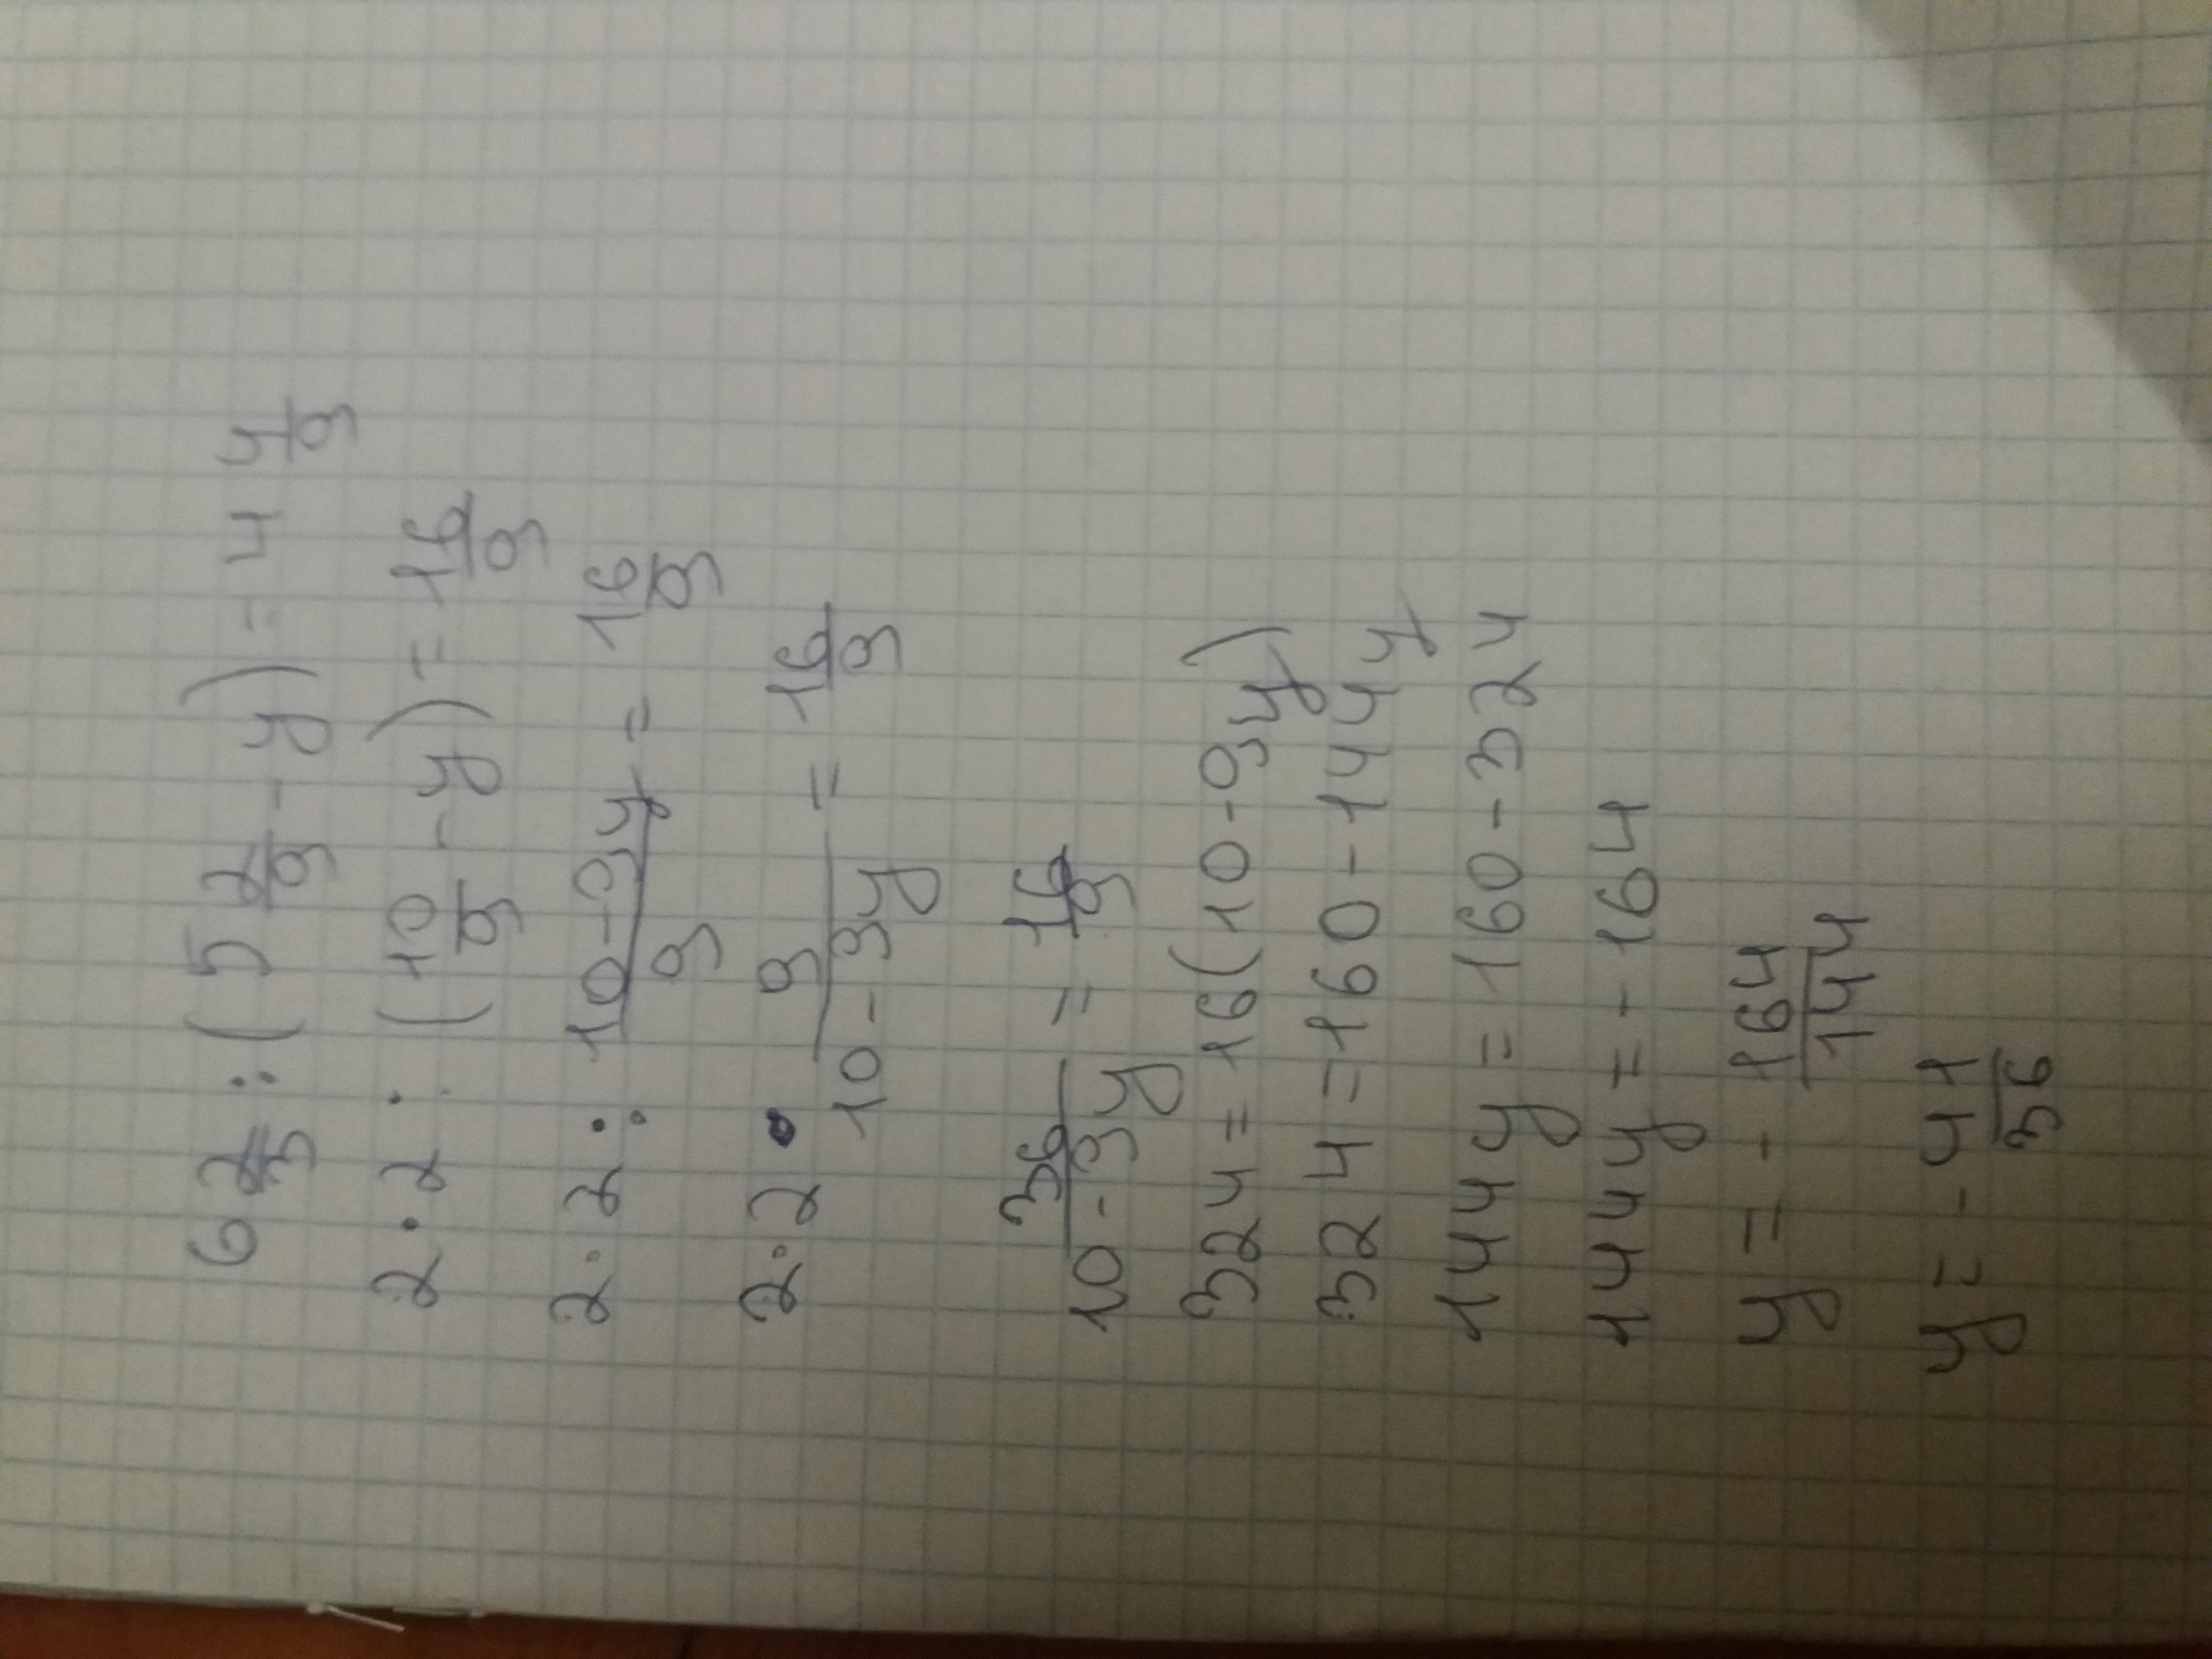 6 2/3 : (5 2/9 - y) = 4 4/9
2·2 : (10/9 - y) = 16/9
2·2 : 10-9y/9 = 16/9
2·2 · 9/10-9y = 16/9
36/10-9y = 16/9
324 = 16(10-9y)
324 = 160 - 144y
144y = 160 - 324
144y = -164
y = - 164/144
y = - 41/36